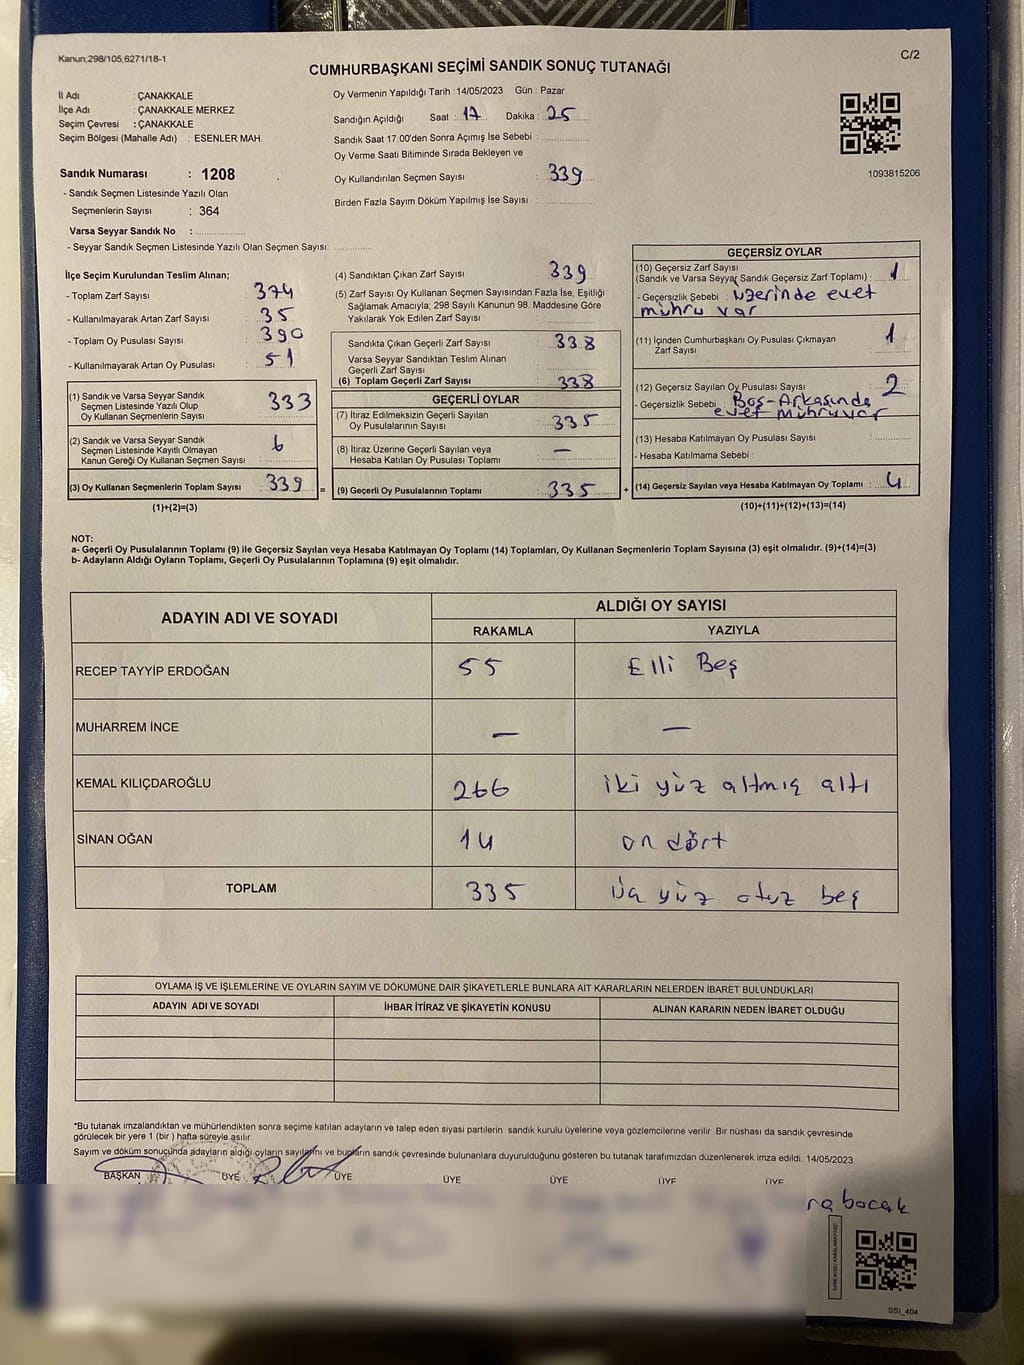 Kanun;298/105,6271/18-1
C/2
CUMHURBAŞKANI SEÇİMİ SANDIK SONUÇ TUTANAĞI
İl Adı : ÇANAKKALE
İlçe Adı : ÇANAKKALE MERKEZ
Seçim Çevresi : ÇANAKKALE
Seçim Bölgesi (Mahalle Adı) : ESENLER MAH.
Sandık Numarası : 1208
- Sandık Seçmen Listesinde Yazılı Olan
Seçmenlerin Sayısı : 364
Varsa Seyyar Sandık No :
- Seyyar Sandık Seçmen Listesinde Yazılı Olan Seçmen Sayısı:
Oy Vermenin Yapıldığı Tarih :14/05/2023 Gün : Pazar
Sandığın Açıldığı Saat : 17 Dakika : 25
Sandık Saat 17:00'den Sonra Açımış İse Sebebi :
Oy Verme Saati Bitiminde Sırada Bekleyen ve
Oy Kullandırılan Seçmen Sayısı : 339
Birden Fazla Sayım Döküm Yapılmış İse Sayısı :
1093815206
İlçe Seçim Kurulundan Teslim Alınan;
- Toplam Zarf Sayısı : 374
- Kullanılmayarak Artan Zarf Sayısı : 35
- Toplam Oy Pusulası Sayısı : 390
- Kullanılmayarak Artan Oy Pusulası : 51
(1) Sandık ve Varsa Seyyar Sandık
Seçmen Listesinde Yazılı Olup
Oy Kullanan Seçmenlerin Sayısı : 333
(2) Sandık ve Varsa Seyyar Sandık
Seçmen Listesinde Kayıtlı Olmayan
Kanun Gereği Oy Kullanan Seçmen Sayısı : 6
(3) Oy Kullanan Seçmenlerin Toplam Sayısı : 339
(1)+(2)=(3)
(4) Sandıktan Çıkan Zarf Sayısı : 339
(5) Zarf Sayısı Oy Kullanan Seçmen Sayısından Fazla İse, Eşitliği
Sağlamak Amacıyla; 298 Sayılı Kanunun 98. Maddesine Göre
Yakılarak Yok Edilen Zarf Sayısı :
Sandıkta Çıkan Geçerli Zarf Sayısı : 338
Varsa Seyyar Sandıktan Teslim Alınan
Geçerli Zarf Sayısı :
(6) Toplam Geçerli Zarf Sayısı : 338
GEÇERLİ OYLAR
(7) İtiraz Edilmeksizin Geçerli Sayılan
Oy Pusulalarının Sayısı : 335
(8) İtiraz Üzerine Geçerli Sayılan veya
Hesaba Katılan Oy Pusulası Toplamı : —
= (9) Geçerli Oy Pusulalarının Toplamı : 335 +
GEÇERSİZ OYLAR
(10) Geçersiz Zarf Sayısı
(Sandık ve Varsa Seyyar Sandık Geçersiz Zarf Toplamı) : 1
- Geçersizlik Sebebi : üzerinde evet
mührü var
(11) İçinden Cumhurbaşkanı Oy Pusulası Çıkmayan
Zarf Sayısı : 1
(12) Geçersiz Sayılan Oy Pusulası Sayısı : 2
- Geçersizlik Sebebi : Boş-Arkasında
evet mührü var
(13) Hesaba Katılmayan Oy Pusulası Sayısı :
- Hesaba Katılmama Sebebi :
(14) Geçersiz Sayılan veya Hesaba Katılmayan Oy Toplamı : 4
(10)+(11)+(12)+(13)=(14)
NOT:
a- Geçerli Oy Pusulalarının Toplamı (9) ile Geçersiz Sayılan veya Hesaba Katılmayan Oy Toplamı (14) Toplamları, Oy Kullanan Seçmenlerin Toplam Sayısına (3) eşit olmalıdır. (9)+(14)=(3)
b- Adayların Aldığı Oyların Toplamı, Geçerli Oy Pusulalarının Toplamına (9) eşit olmalıdır.
ADAYIN ADI VE SOYADI
ALDIĞI OY SAYISI
RAKAMLA YAZIYLA
RECEP TAYYİP ERDOĞAN 55 Elli Beş
MUHARREM İNCE — —
KEMAL KILIÇDAROĞLU 266 iki yüz altmış altı
SİNAN OĞAN 14 on dört
TOPLAM 335 üç yüz otuz beş
OYLAMA İŞ VE İŞLEMLERİNE VE OYLARIN SAYIM VE DÖKÜMÜNE DAİR ŞİKAYETLERLE BUNLARA AİT KARARLARIN NELERDEN İBARET BULUNDUKLARI
ADAYIN ADI VE SOYADI İHBAR İTİRAZ VE ŞİKAYETİN KONUSU ALINAN KARARIN NEDEN İBARET OLDUĞU
*Bu tutanak imzalandıktan ve mühürlendikten sonra seçime katılan adayların ve talep eden siyasi partilerin sandık kurulu üyelerine veya gözlemcilerine verilir. Bir nüshası da sandık çevresinde
görülecek bir yere 1 (bir ) hafta süreyle asılır.
Sayım ve döküm sonucunda adayların aldığı oyların sayılarını ve bunların sandık çevresinde bulunanlara duyurulduğunu gösteren bu tutanak tarafımızdan düzenlenerek imza edildi. 14/05/2023
BAŞKAN ÜYE ÜYE ÜYE ÜYE ÜYE ÜYE
SSI_404